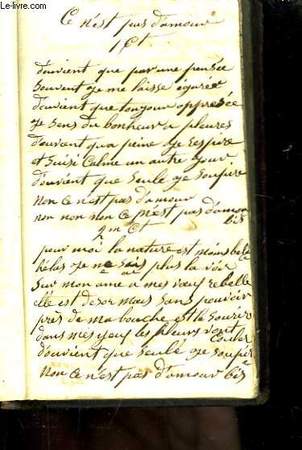 Le-livre.com
Ce n'est pas d'amour
1 Ct.
d'ouvient que par une pensée
souvent je me laisse égarée
d'ouvient que toujour oppresée
je sens du bonheur a pleurer
d'ouvient qu'a peine je respire
et suis calme un autre jour
d'ouvient que seule je soupire
non ce n'est pas d'amour
non non non ce n'est pas d'amour bis
2m Ct
pour moi la nature est moins belle
hélas je ne sais plus la voir
sur mon ame a mes vœux rebelle
elle est desormais sans pouvoir
près de ma bouche est le sourire
dans mes yeux les pleurs vont couler
d'ouvient que seule je soupir
non ce n'est pas d'amour bis